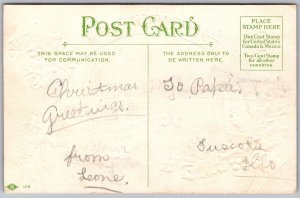 POST CARD
PLACE
STAMP HERE
One Cent Stamp
for United States
Canada & Mexico
Two Cent Stamp
for all other
countries
THIS SPACE MAY BE USED
FOR COMMUNICATION.
THE ADDRESS ONLY TO
BE WRITTEN HERE.
Christmas
Greetings.
from
Leone.
To Papa.
Tuscola
Ills